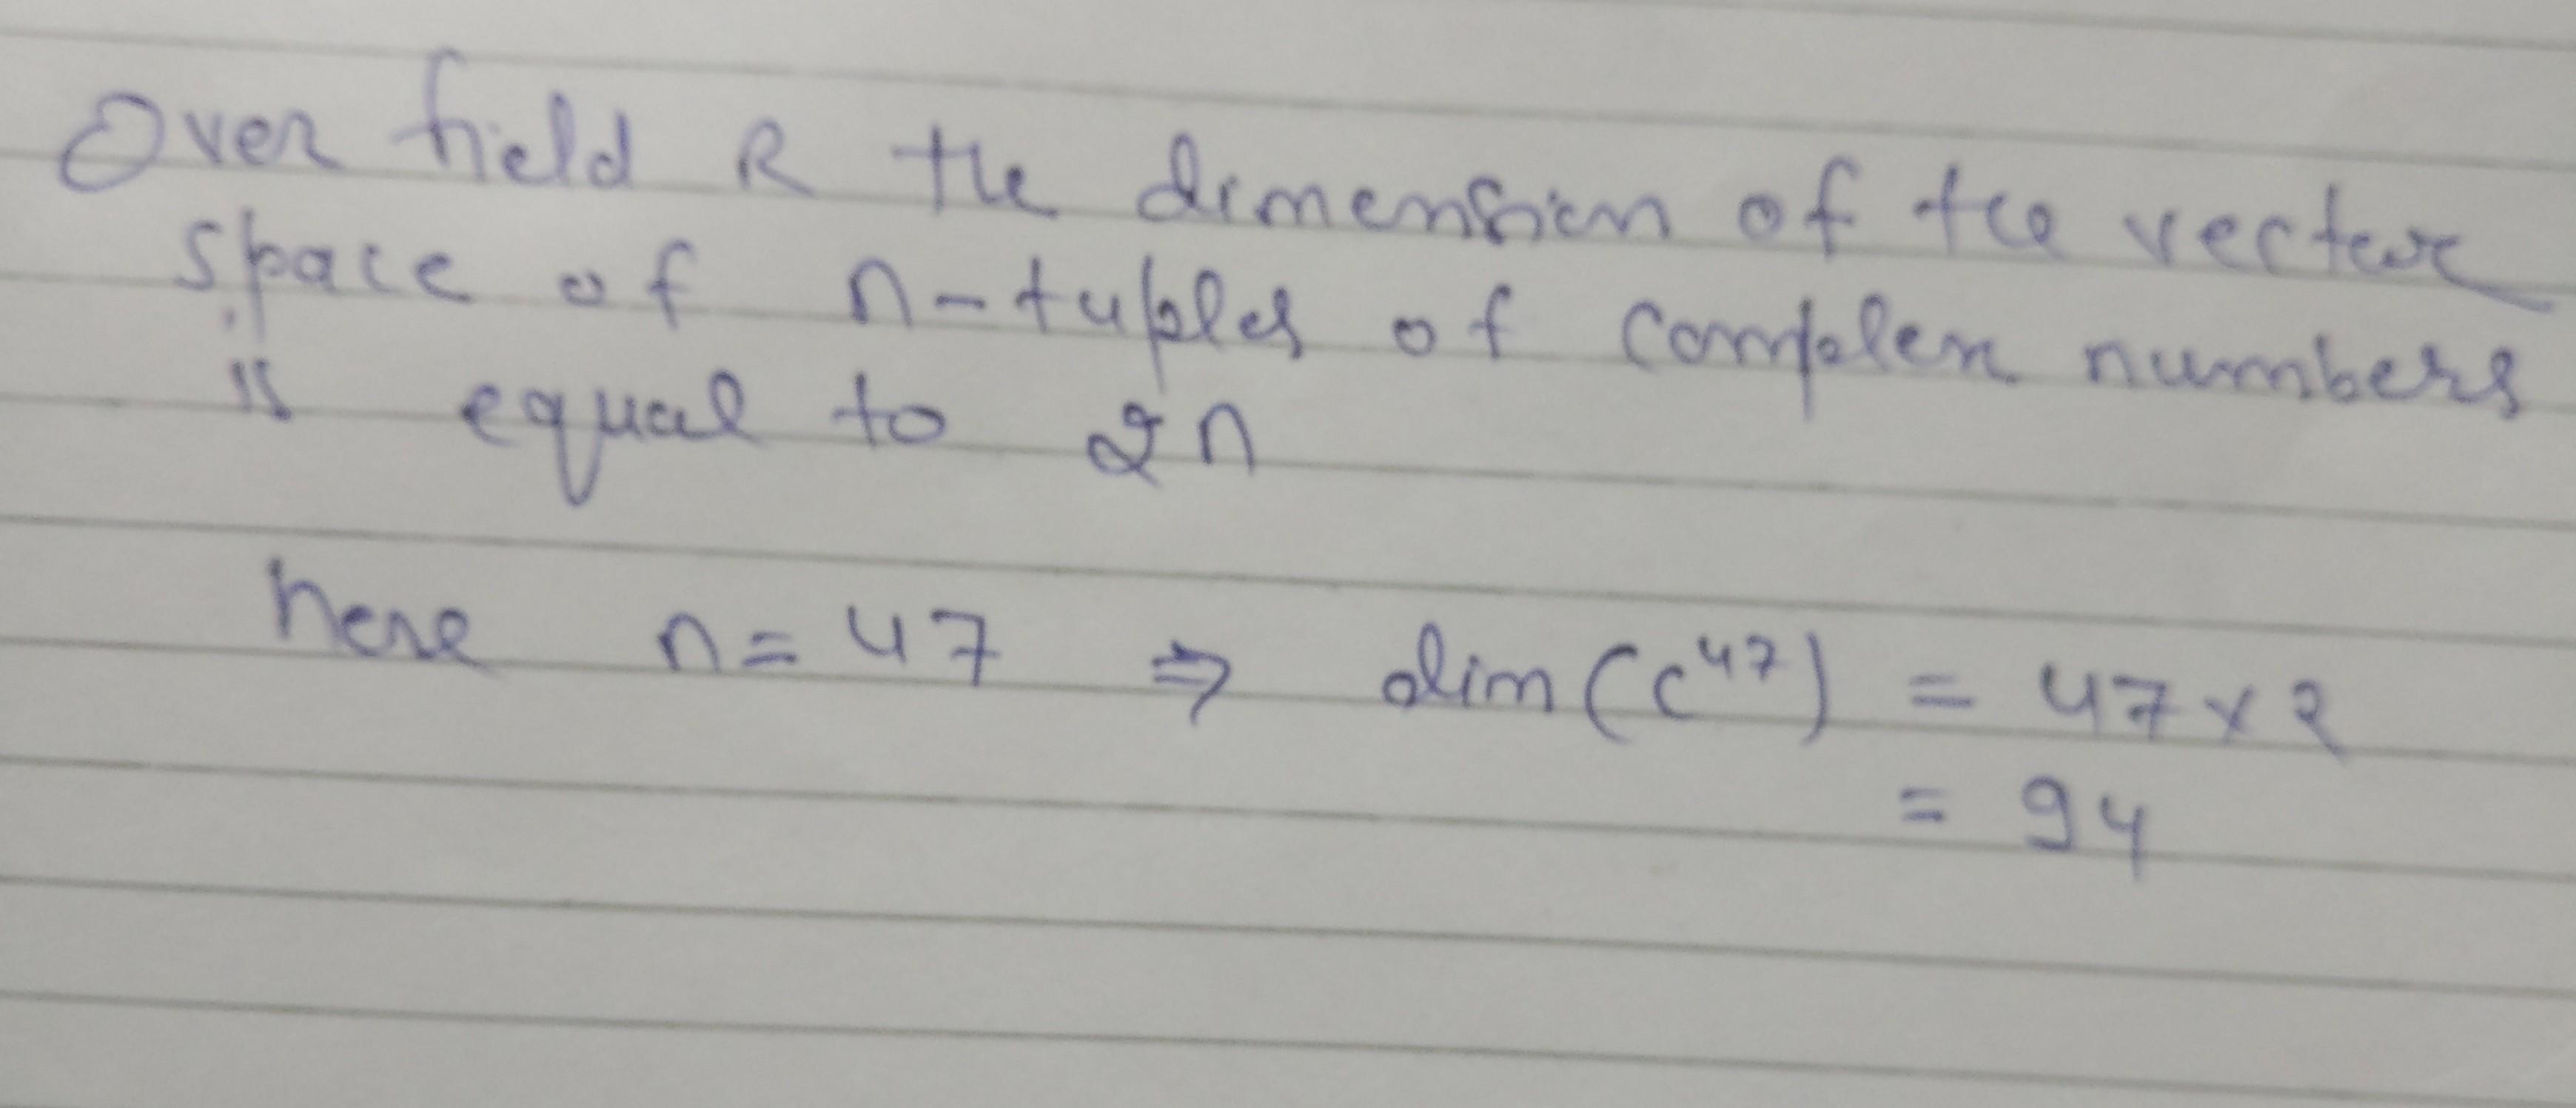 Over field R the dimension of the vector
space of n-tuples of complex numbers
is equal to 2n
here n = 47 ⇒ dim(C⁴⁷) = 47 × 2
= 94